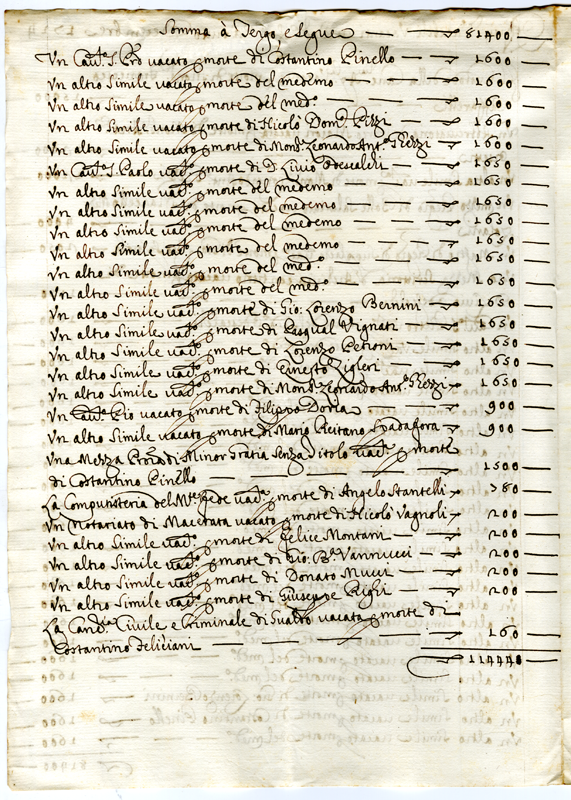 Somma à Tergo e segue — 81400
Un Cauto. S. Pro vacato p morte di Costantino Pinello — 1600
Un altro Simile vacato p morte del medemo — 1600
Un altro Simile vacato p morte del med.o — 1600
Un altro Simile vacato p morte di Nicolò Dom.co Pizzi — 1600
Un altro Simile vacato p morte di Mons.r Leonardo Ant.o — 1600
Un Cauto. S. Paolo vac.to p morte di D. Livio Odescalchi — 1650
Un altro Simile vac.to p morte del medemo — 1650
Un altro Simile vac.to p morte del medemo — 1650
Un altro Simile vac.to p morte del medemo — 1650
Un altro Simile vac.to p morte del medemo — 1650
Un altro Simile vac.to p morte del med.o — 1650
Un altro Simile vac.to p morte del med.o — 1650
Un altro Simile vac.to p morte di Gio: Lorenzo Bernini — 1650
Un altro Simile vac.to p morte di Pasqual Vignati — 1650
Un altro Simile vac.to p morte di Lorenzo Petroni — 1650
Un altro Simile vac.to p morte di Ernesto Zigleri — 1650
Un altro Simile vac.to p morte di Mons.r Leonardo Ant.o — 1650
Un Cauto. Pio vacato p morte di Filippo Doria — 900
Un altro Simile vacato p morte di Mario Reitano Spadafora — 900
Una Mezza di Minor Gratia Senza Titolo vac.ta p morte
di Costantino Pinello — 1500
La Computisteria del M.te fede vac.ta p morte di Angelo Stantelli — 380
Un Notariato di Macerata vacato p morte di Nicolò Vagnoli — 200
Un altro Simile vac.to p morte di Felice Montani — 200
Un altro Simile vac.to p morte di Gio: B.a Vannucci — 200
Un altro Simile vac.to p morte di Donato Mucci — 200
Un altro Simile vac.to p morte di Giuseppe Righi — 200
La Canc.ria Civile e Criminale di Gualdo vacata p morte di
Costantino Feliciani — 160
114440